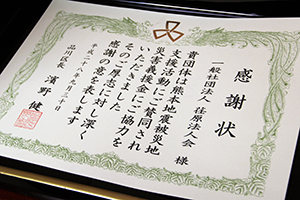 感謝状
一般社団法人 荏原法人会 様
貴団体は熊本地震被災地
支援活動にご賛同され
災害義援金にご協力を
いただきました
ご厚志に対し深く
感謝の意を表します
平成二十八年六月三十日
品川区長 濱野 健